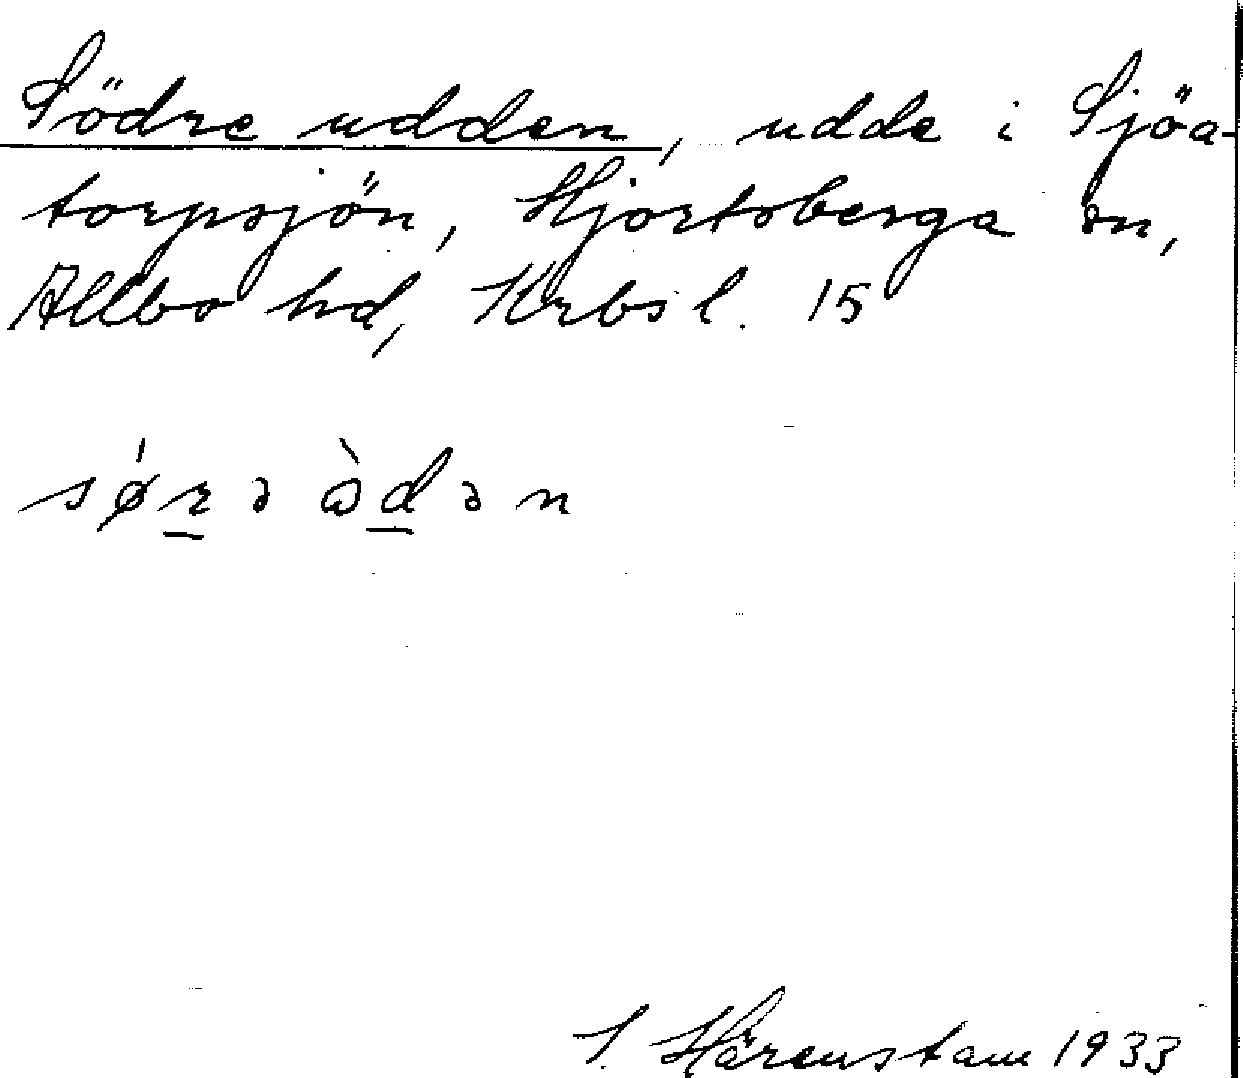 Södre udden, udde i Sjöa-
torpsjön, Hjortsberga sn,
Allbo hd, Krbs l. 15
sǿrə ὼdən
S. Härenstam 1933